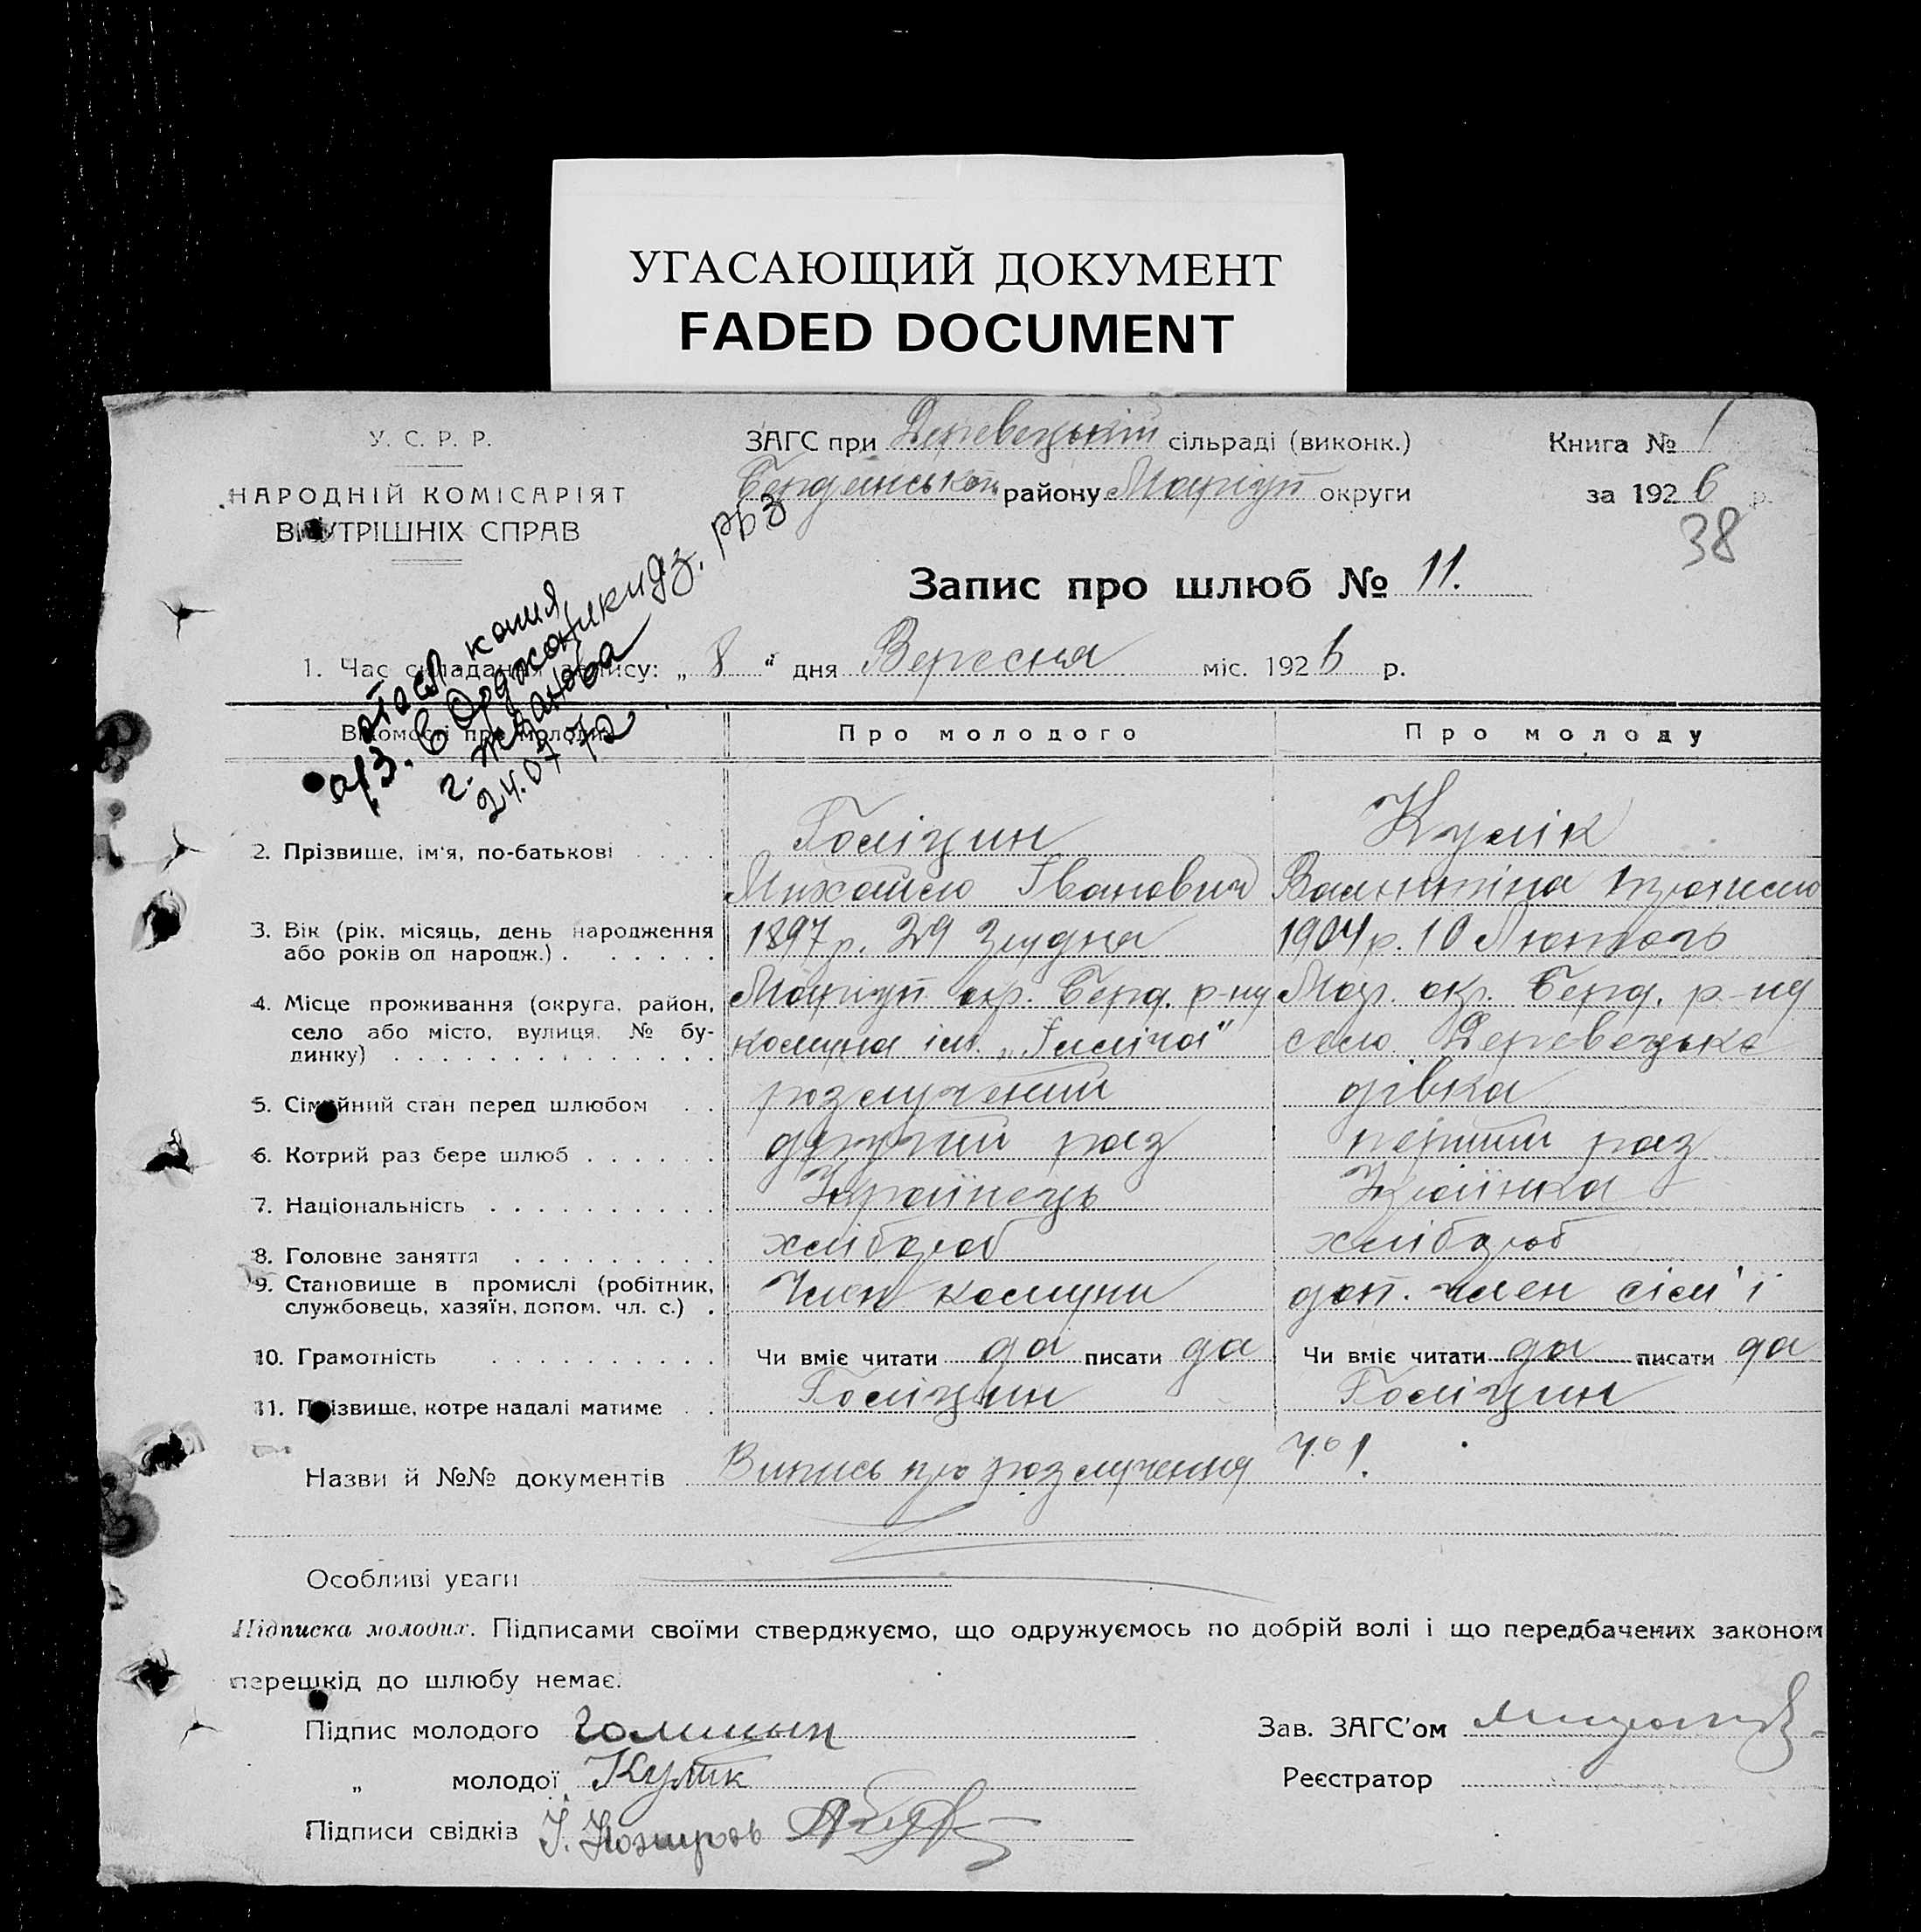 УГАСАЮЩИЙ ДОКУМЕНТ
FADED DOCUMENT
У. С. Р. Р.
НАРОДНІЙ КОМІСАРІЯТ
ВНУТРІШНІХ СПРАВ
ЗАГС при Деревецькій сільраді (виконк.)
району Маріуп округи
Книга № 1
за 1926 р.
38
Запис про шлюб № 11.
копия
в Орджоникидз. рбз
г. Жданова
24.07 72
1. Час складання запису: „ 8 " дня Вересня міс. 1926 р.
Відомості про молодих
Про молодого
Про молоду
2. Прізвище, ім'я, по-батькові
Голіцин
Михайло Іванович
Кулік
Валинтіна
3. Вік (рік, місяць, день народження
або років од народж.)
1897 р. 29 Грудня
1904 р. 10 Лютого
4. Місце проживання (округа, район,
село або місто, вулиця, № бу-
динку)
Маріуп. окр. р-ну
комуна ім. „Ілліча"
Мар. окр. р-ну
село Деревецьке
5. Сімейний стан перед шлюбом
розлучений
дівка
6. Котрий раз бере шлюб
другий раз
перший раз
7. Національність
Українець
Українка
8. Головне заняття
хлібороб
хлібороб
9. Становище в промислі (робітник,
службовець, хазяїн, допом. чл. с.)
Член комуни
доп. член сім'ї
10. Грамотність
Чи вміє читати да писати да
Чи вміє читати да писати да
11. Прізвище, котре надалі матиме
Голіцин
Голіцин
Назви й №№ документів Випись про розлучення № 1.
Особливі уваги
Підписка молодих. Підписами своїми стверджуємо, що одружуємось по добрій волі і що передбачених законом
перешкід до шлюбу немає.
Підпис молодого Голицын
Зав. ЗАГС'ом
„ молодої Кулік
Реєстратор
Підписи свідків